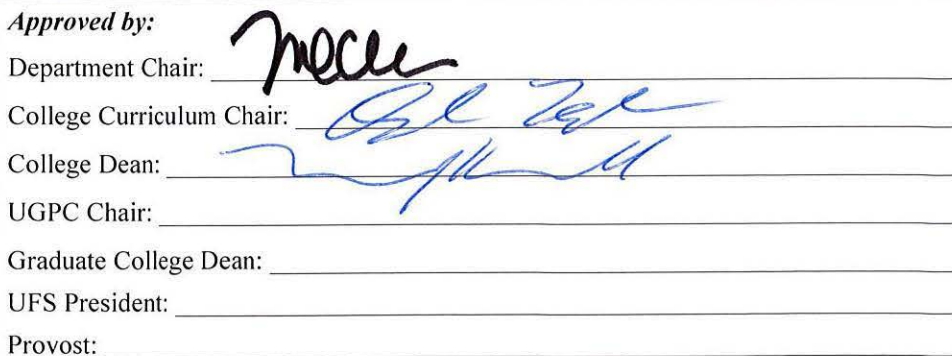 Approved by:
Department Chair:
College Curriculum Chair:
College Dean:
UGPC Chair:
Graduate College Dean:
UFS President:
Provost: